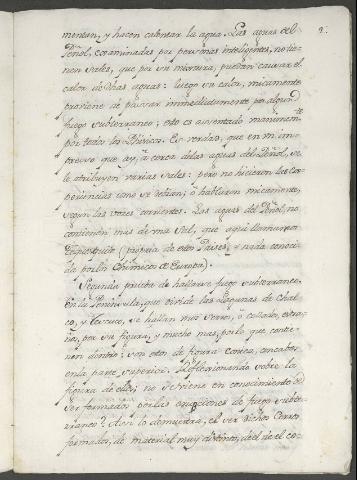 mentan, y hacen calentar la agua. Las aguas del
Peñol, examinadas por personas inteligentes, no tie-
nen sales, que por su mixtura, puedan causar el
calor de dhas aguas: luego su calor, unicamente
proviene de passar immediatamente por algun
fuego subterraneo; esto es assentado unanimem.te
por todos los Phisicos. Es verdad, que en un im-
presso que ay, à cerca de las aguas del Peñol, se
le atribuyen varias sales: pero no hicieron las ex-
periencias como se debian; ò hablaron unicamente,
segun las voces corrientes. Las aguas del Peñol, no
contienen mas de una sal, que aqui llamamos
Tequesquite (propria de estos Paises, y nada conoci-
da por los Chimicos de Europa).
Segunda prueba de hallarse fuego subterraneo.
En la Peninsula, que divide las Lagunas de Chal-
co, y Tescuco, se hallan unos Serros, ò collados, extra-
ños, por su figura, y mucho mas, por lo que contie-
nen dentro: son estos de figura conica, concabos,
en la parte superior. Reflexionando sobre la
figura de ellos, no se viene en conocimiento de
ser formados por las erupciones de fuego subte-
rraneo? Assi lo demuestra, el ver dichos Cerros
formados, de material muy distinto, de el de el co-